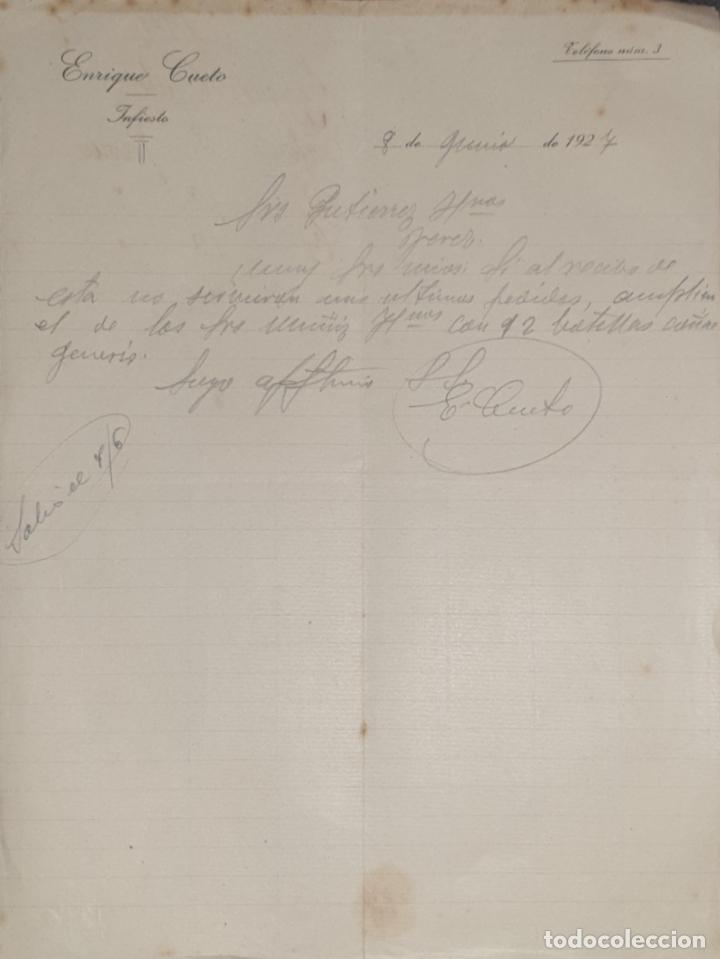 Teléfono núm. 3
Enrique Cueto
Infiesto
8 de Junio de 1927
Srs Gutierrez Hnos
Jerez.
Muy Srs mios: Si al recibo de
esta no sirvieran mis ultimos pedidos, amplien
el de los Srs Muñiz Hnos con 12 botellas coñac
generis.
Suyo affmo S. S.
E. Cueto
Salió el 8/6
todocoleccion.net